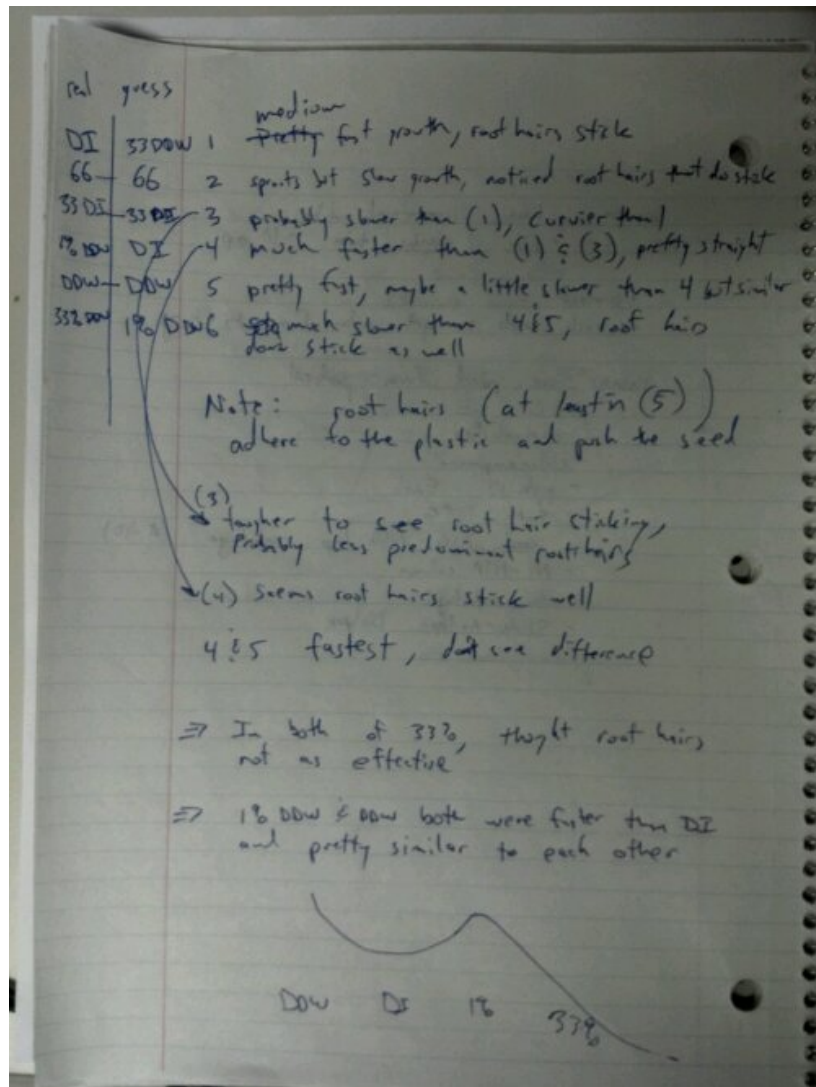 real guess
medium
DI 33DDW 1 Pretty fast growth, root hairs stick
66 66 2 sprouts but slow growth, noticed root hairs that do stick
33 DI 33 DI 3 probably slower than (1), curvier than 1
1% DDW DI 4 much faster than (1) & (3), pretty straight
DDW DDW 5 pretty fast, maybe a little slower than 4 but similar
33% DDW 1% DDW 6 much slower than 4&5, root hairs
dont stick as well
Note: root hairs (at least in (5))
adhere to the plastic and push the seed
(3)
tougher to see root hair sticking,
Probably less predominant root hairs
(4) seems root hairs stick well
4 & 5 fastest, don't see difference
⇒ In both of 33%, thought root hairs
not as effective
⇒ 1% DDW & DDW both were faster than DI
and pretty similar to each other
DDW DI 1% 33%